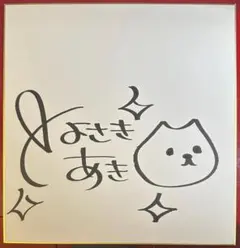 よさき
あき